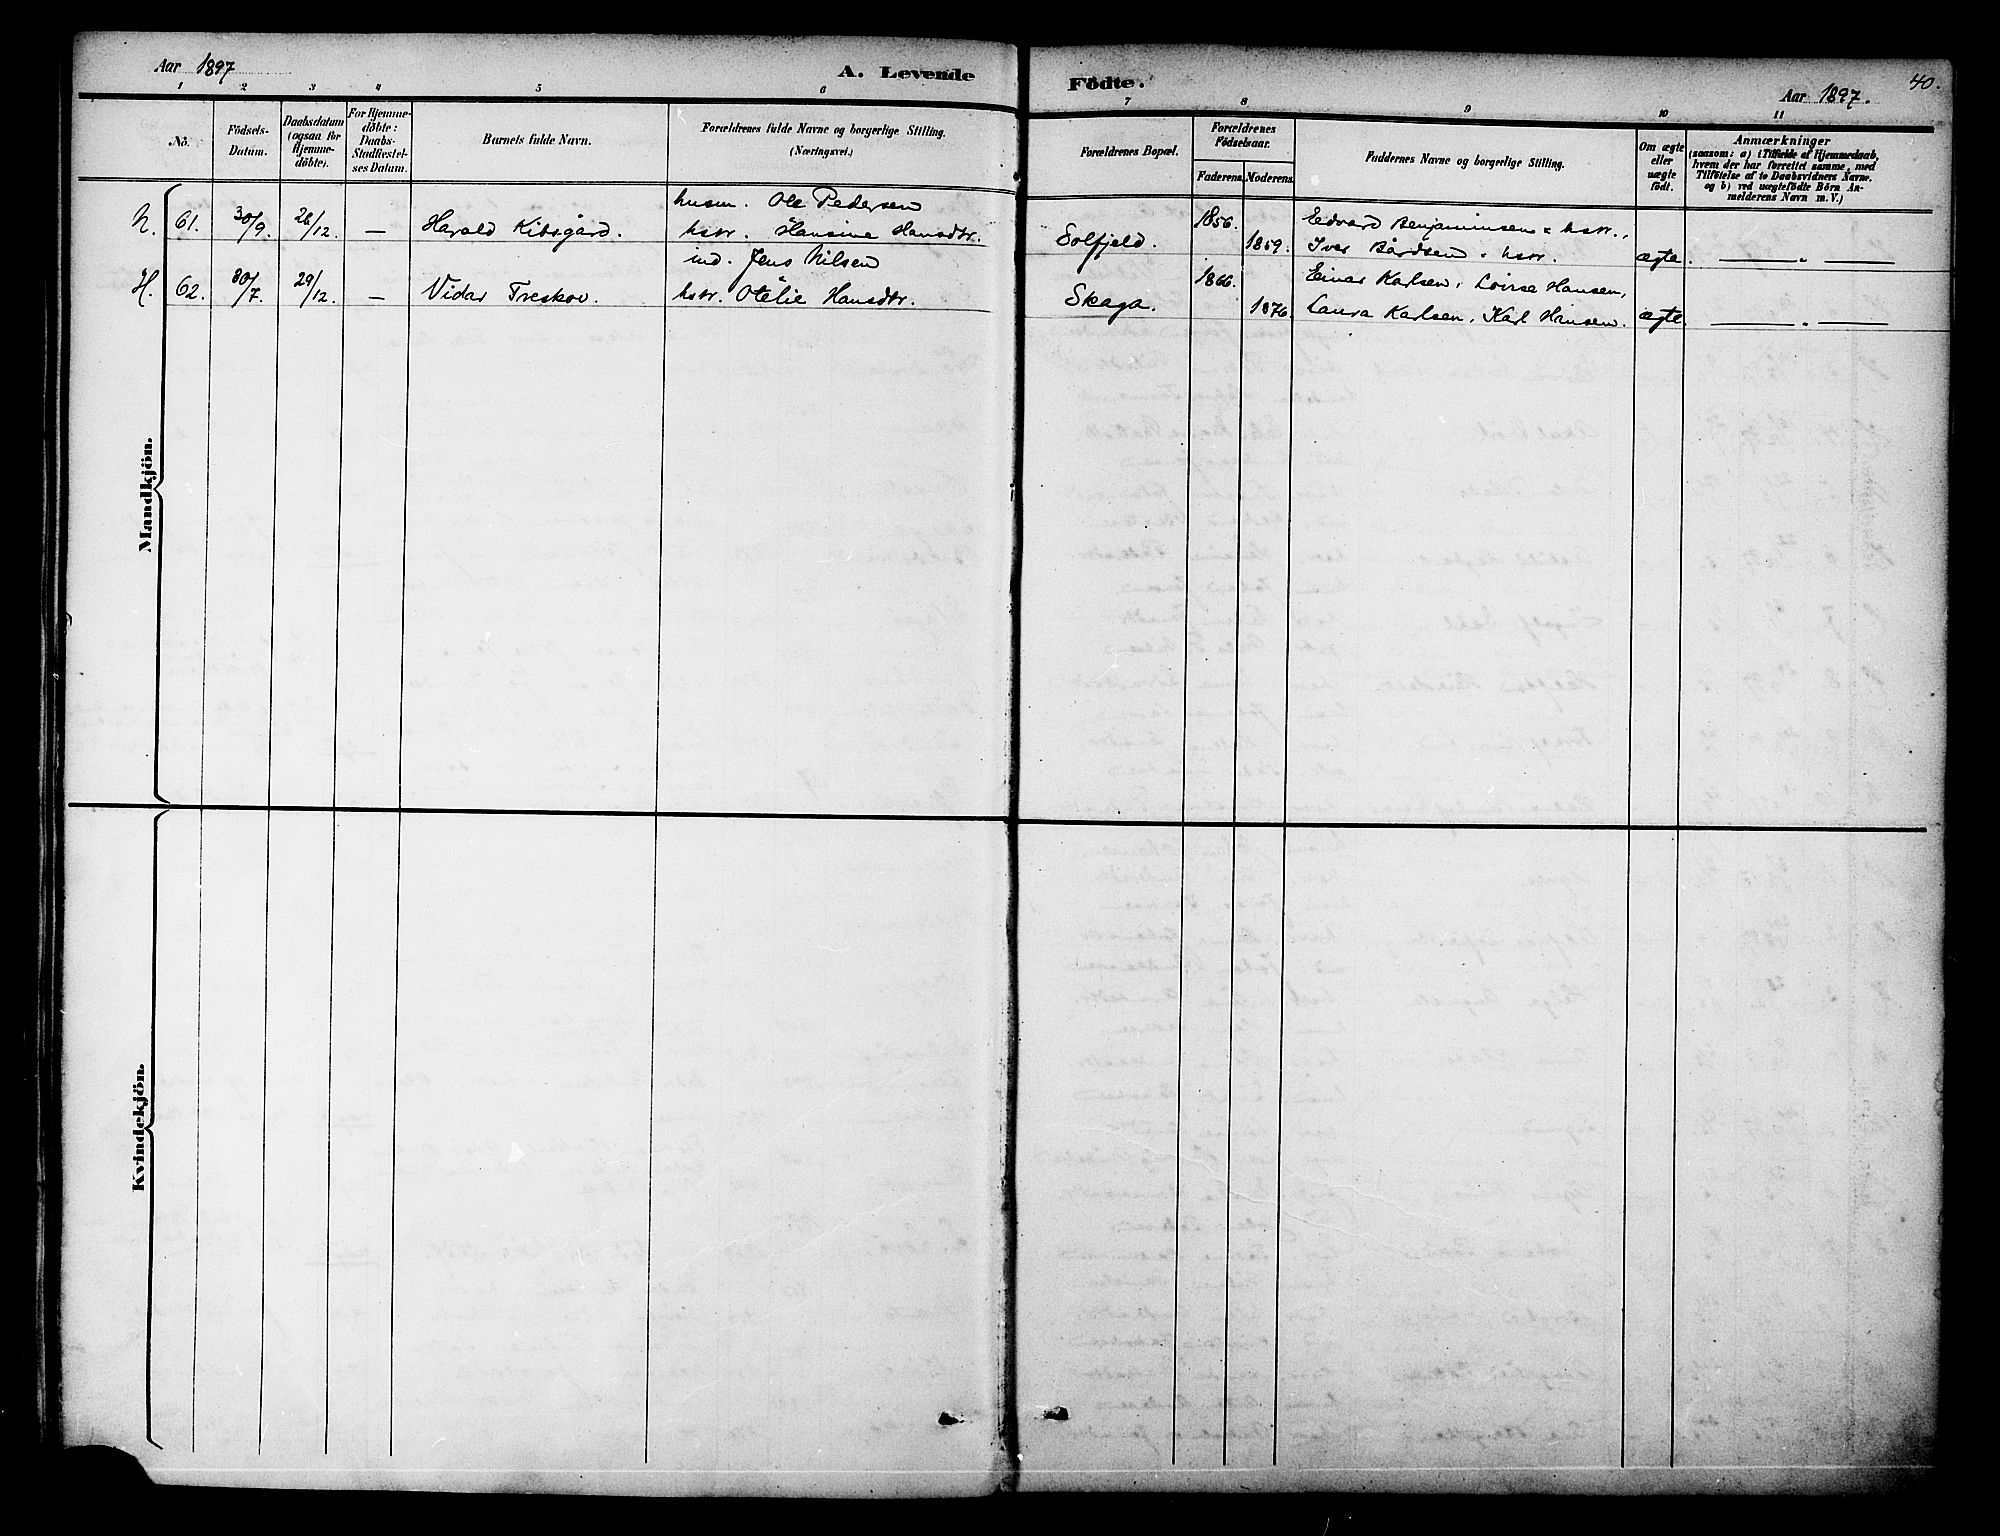 Aar 1897
A. Levende
Födte.
Aar 1897.
40.
1 2 3 4 5 6 7 8 9 10 11
No.
Födsels-
Datum.
Daabsdatum
(ogsaa for
Hjemme-
döbte).
For Hjemme-
döbte:
Daabs-
Stadfæstel-
ses Datum.
Barnets fulde Navn.
Forældrenes fulde Navne og borgerlige Stilling.
(Næringsvei.)
Forældrenes Bopæl.
Forældrenes
Födselsaar.
Faderens. Moderens.
Faddernes Navne og borgerlige Stilling.
Om ægte
eller
uægte
födt.
Anmærkninger
(saasom: a) i Tilfælde af Hjemmedaab,
hvem der har forrettet samme, med
Tilföielse af to Daabsvidners Navne.
og b) ved uægtefödte Börn An-
melderens Navn m.V.)
Mandkjön.
N. 61. 30/9. 26/12. — Harald Kibsgård.
husm. Ole Pedersen
hstr. Hansine Hansdtr.
Solfjeld. 1856. 1859.
Edvard Benjaminsen o hstr.,
Iver Bårdsen o hstr. ægte. — " —
H. 62. 30/7. 29/12. — Vidar Treskov.
ind. Jens Nilsen
hstr. Otelie Hansdtr.
Skaga. 1866. 1876.
Einar Karlsen, Lovise Hansen,
Laura Karlsen, Karl Hansen. ægte. — " —
Kvindekjön.